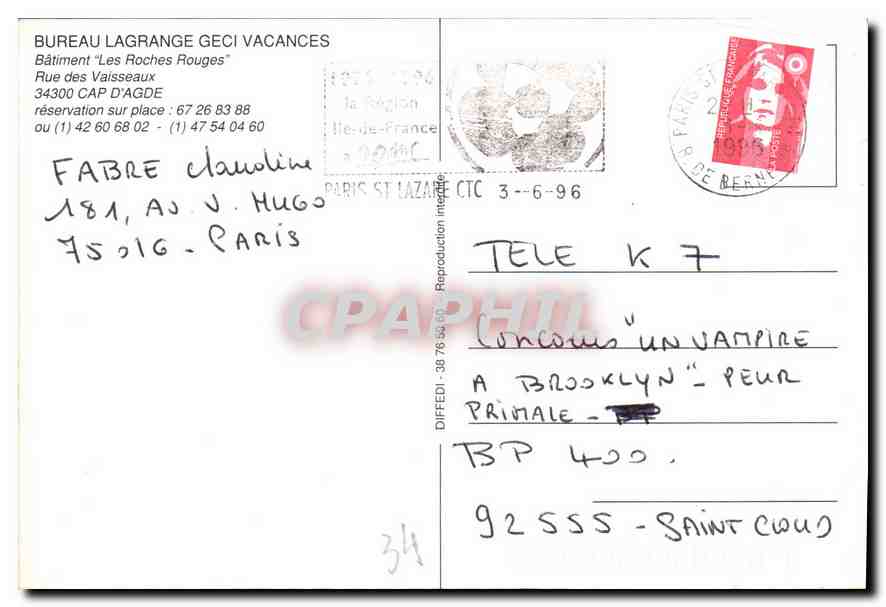 BUREAU LAGRANGE GECI VACANCES
Bâtiment "Les Roches Rouges"
Rue des Vaisseaux
34300 CAP D'AGDE
réservation sur place : 67 26 83 88
ou (1) 42 60 68 02 - (1) 47 54 04 60
FABRE Claudine
181, AV. V. HUGO
75016 - PARIS
la Région
Ile-de-France
PARIS ST LAZARE CTC 3--6-96
PARIS ST
1996
R DE BERNE
REPUBLIQUE FRANÇAISE
LA POSTE
DIFFEDI - 38 76 50 60 - Reproduction interdite
CPAPHIL
TELE K 7
Concours "UN VAMPIRE
A BROOKLYN" - PEUR
PRIMALE -
BP 400.
92555 - SAINT CLOUD
34